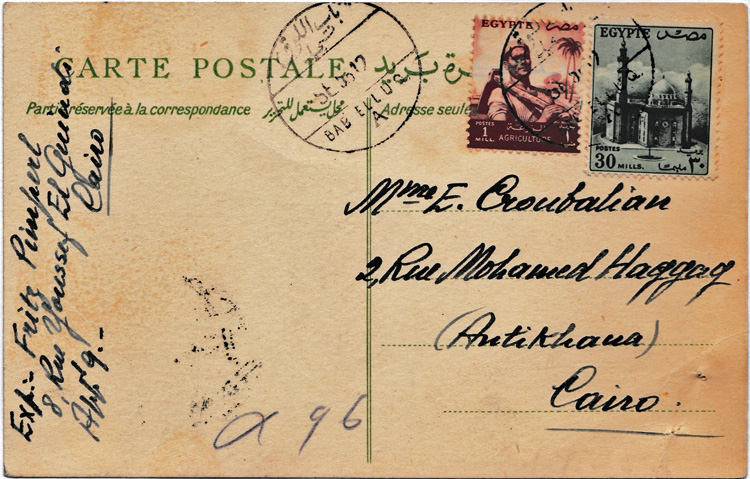 CARTE POSTALE
تذكرة بريد
Partie réservée à la correspondance
محل يستعمل للتحرير
Adresse seule
باب اللوق
SE 56 12
BAB EL LUQ
A
EGYPTE مصر
POSTES
1 MILL.
AGRICULTURE
الزراعة
EGYPTE مصر
POSTES
30 MILLS.
٣٠ مليم
Mme E. Croubalian
2, Rue Mohamed Haggag
(Antikhana)
Cairo.
Exp:- Fritz Pimperl
8, Rue Youssef El Guindi
App. 9.-
Cairo
α 96